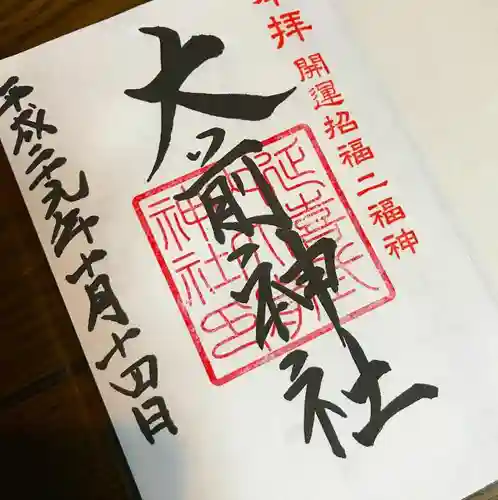 奉拝
開運招福二福神
大前神社
延喜式内
大前
神社印
平成二十九年十月十四日